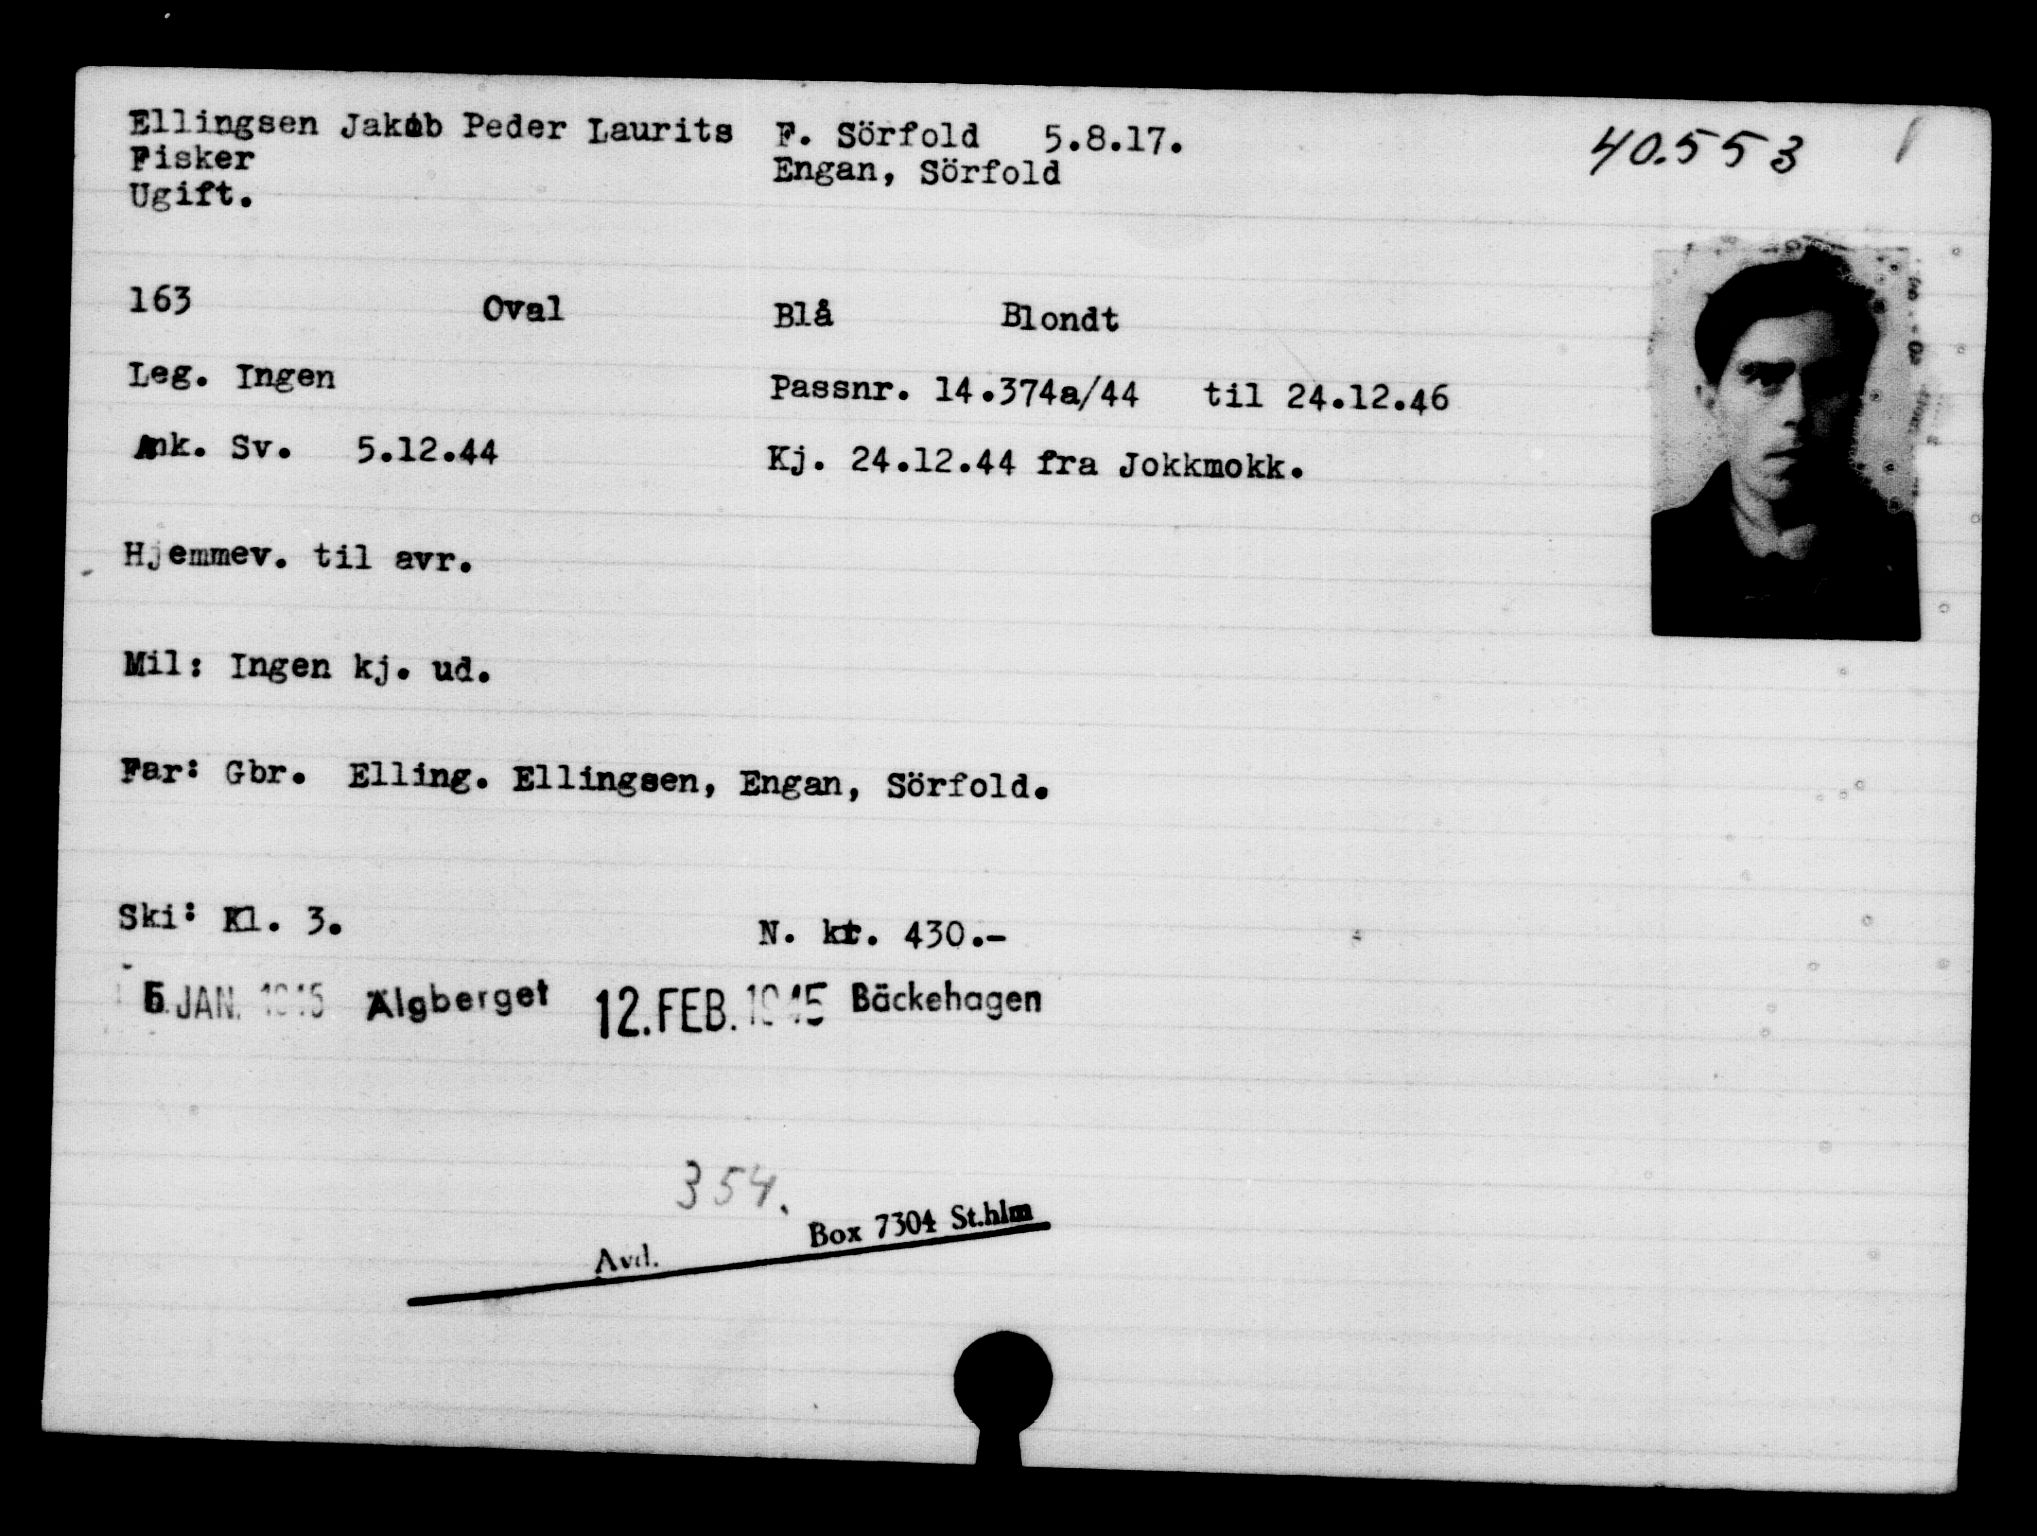 Ellingsen Jakob Peder Laurits F. Sörfold 5.8.17. 40.553
Fisker Engan, Sörfold
Ugift.
163 Oval Blå Blondt
Leg. Ingen Passnr. 14.374a/44 til 24.12.46
Ank. Sv. 5.12.44 Kj. 24.12.44 fra Jokkmokk.
Hjemmev. til avr.
Mil: Ingen kj. ud.
Far: Gbr. Elling. Ellingsen, Engan, Sörfold.
Ski: Kl. 3. N. kr. 430.-
JAN. 1945 Älgberget 12. FEB. 1945 Bäckehagen
354.
Avd. Box 7304 St.hlm